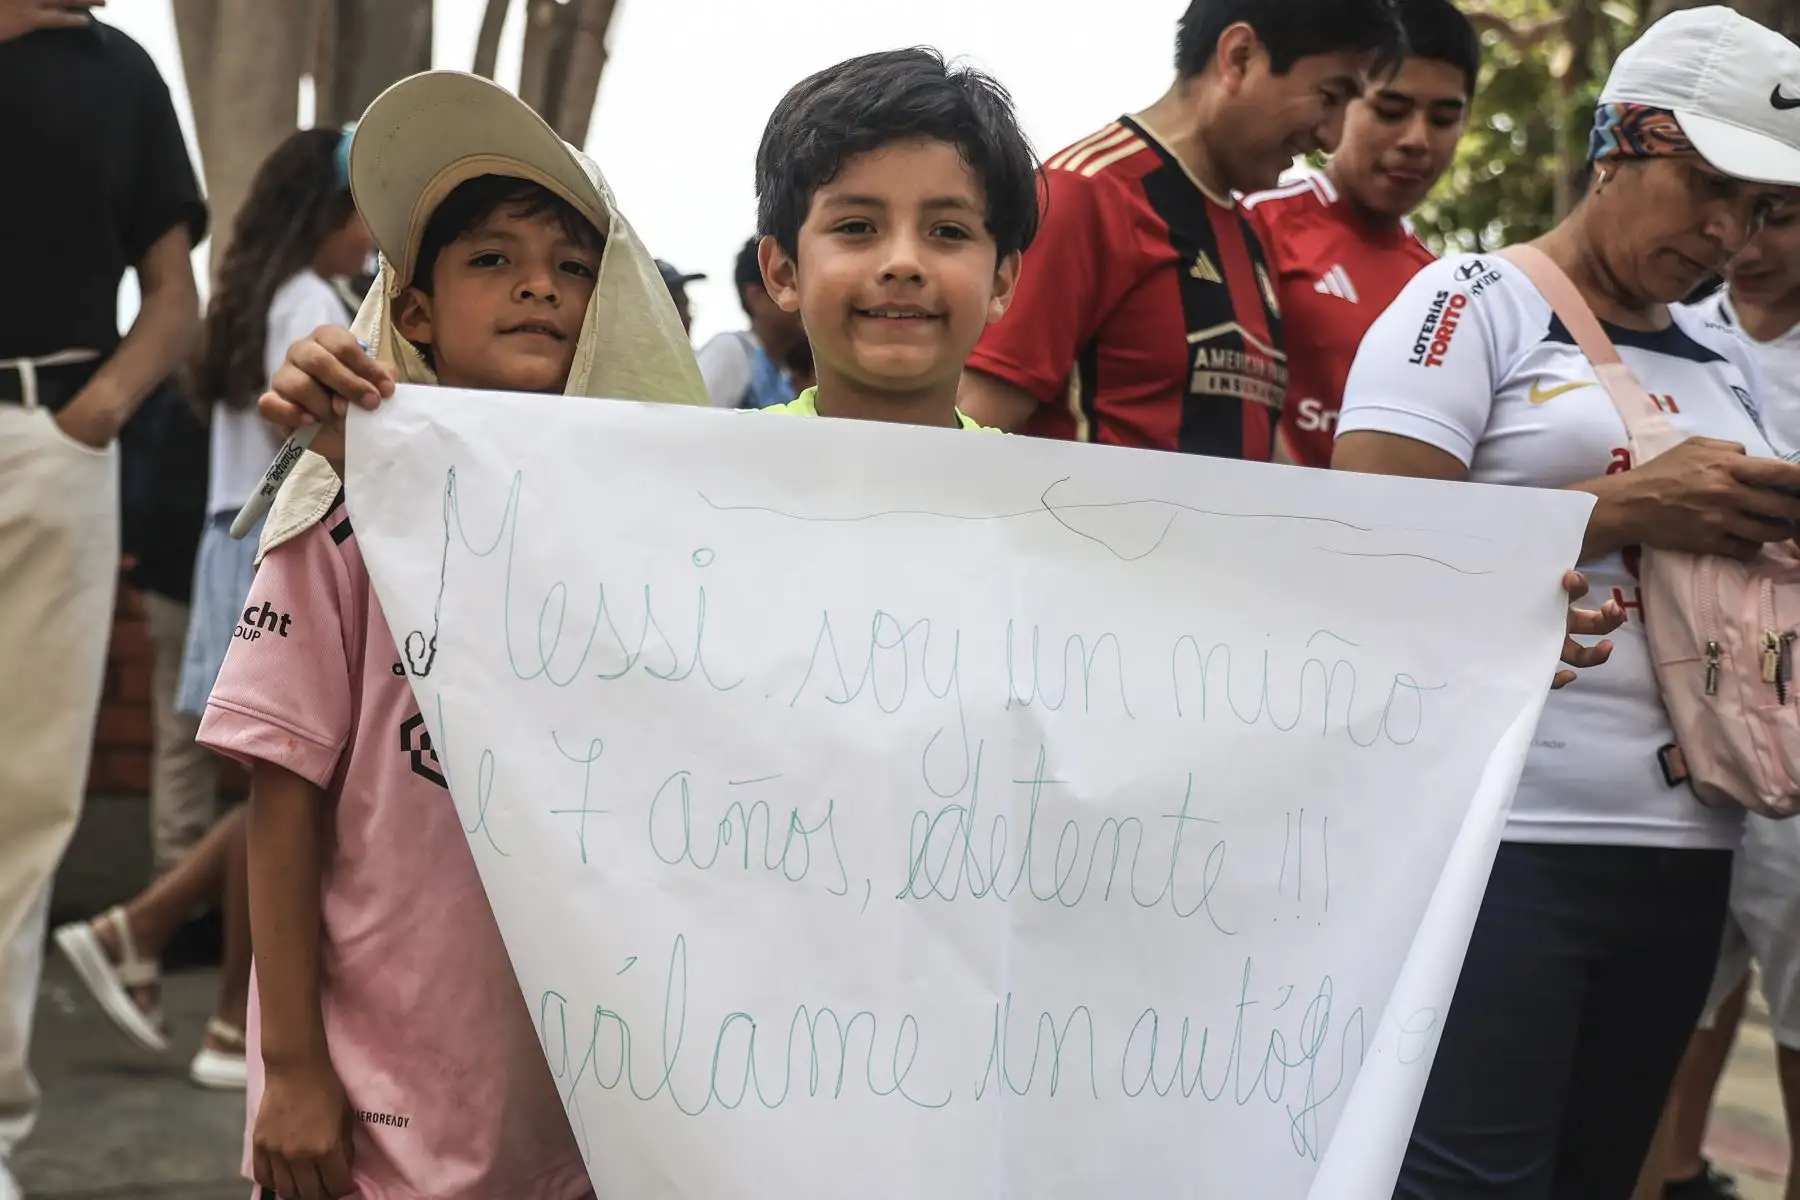 Messi. soy un niño
de 7 años, detente!!!
gálame un autógra
Sharpie
cht
OUP
AEROREADY
AMERICAN
INS
LOTERIAS
TORITO
HYUNDAI